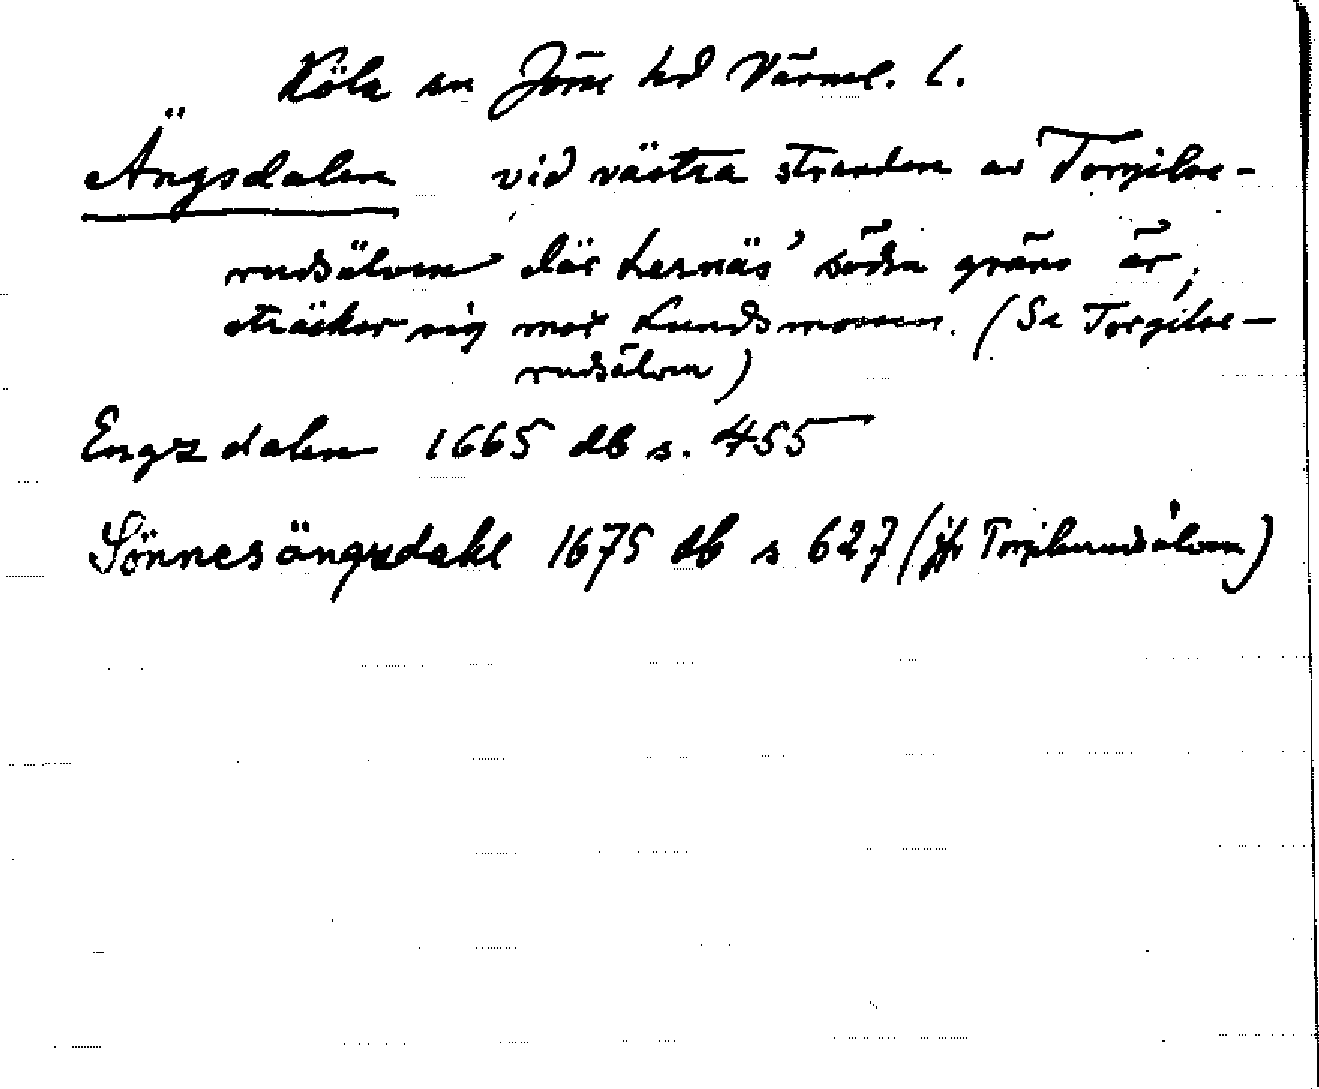 Köla sn Jösse hd Värml. l.
Ängsdalen vid västra stranden av Torgilse-
rudsälven där Lernäs' södra gräns är,
sträcker sig mot Lundsmossen. (Se Torgilse-
rudsälven)
Engszdalen 1665 db s. 455
Sönnesängzdahl 1675 db s 627 (jfr Torgilserudsälven)